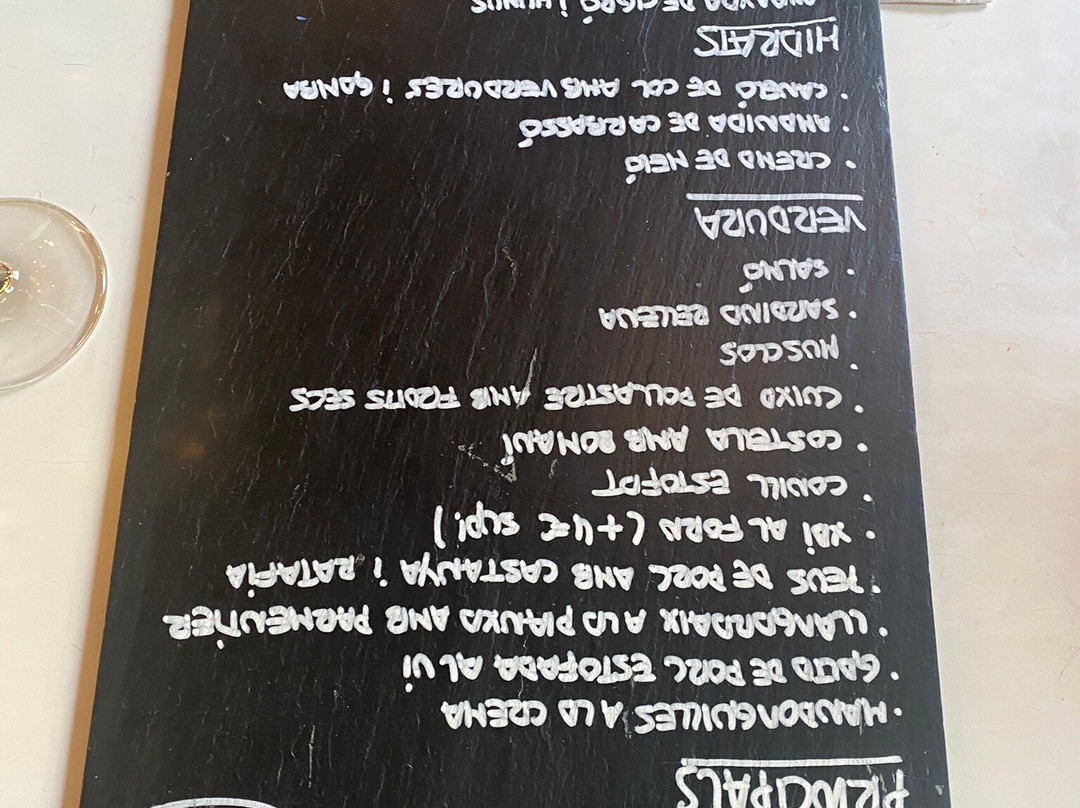 PRINCIPALS
· MANDONGUILLES A LA CREMA
· GALTA DE PORC ESTOFADA AL VI
· LLANGARDAIX A LA PLANXA AMB PARMENTIER
· PEUS DE PORC AMB CASTANYA I RATAFIA
· XAI AL FORN (+4€ supl.)
· CONILL ESTOFAT
· COSTELLA AMB ROMANÍ
· CUIXA DE POLLASTRE AMB FRUITS SECS
· MUSCLOS
· SARDINA RELLENA
· SALMÓ
VERDURA
· CREMA DE MELÓ
· AMANIDA DE CARBASSÓ
· CANELÓ DE COL AMB VERDURES I GAMBA
HIDRATS
AMANIDA DE CIGRÓ I HUMUS